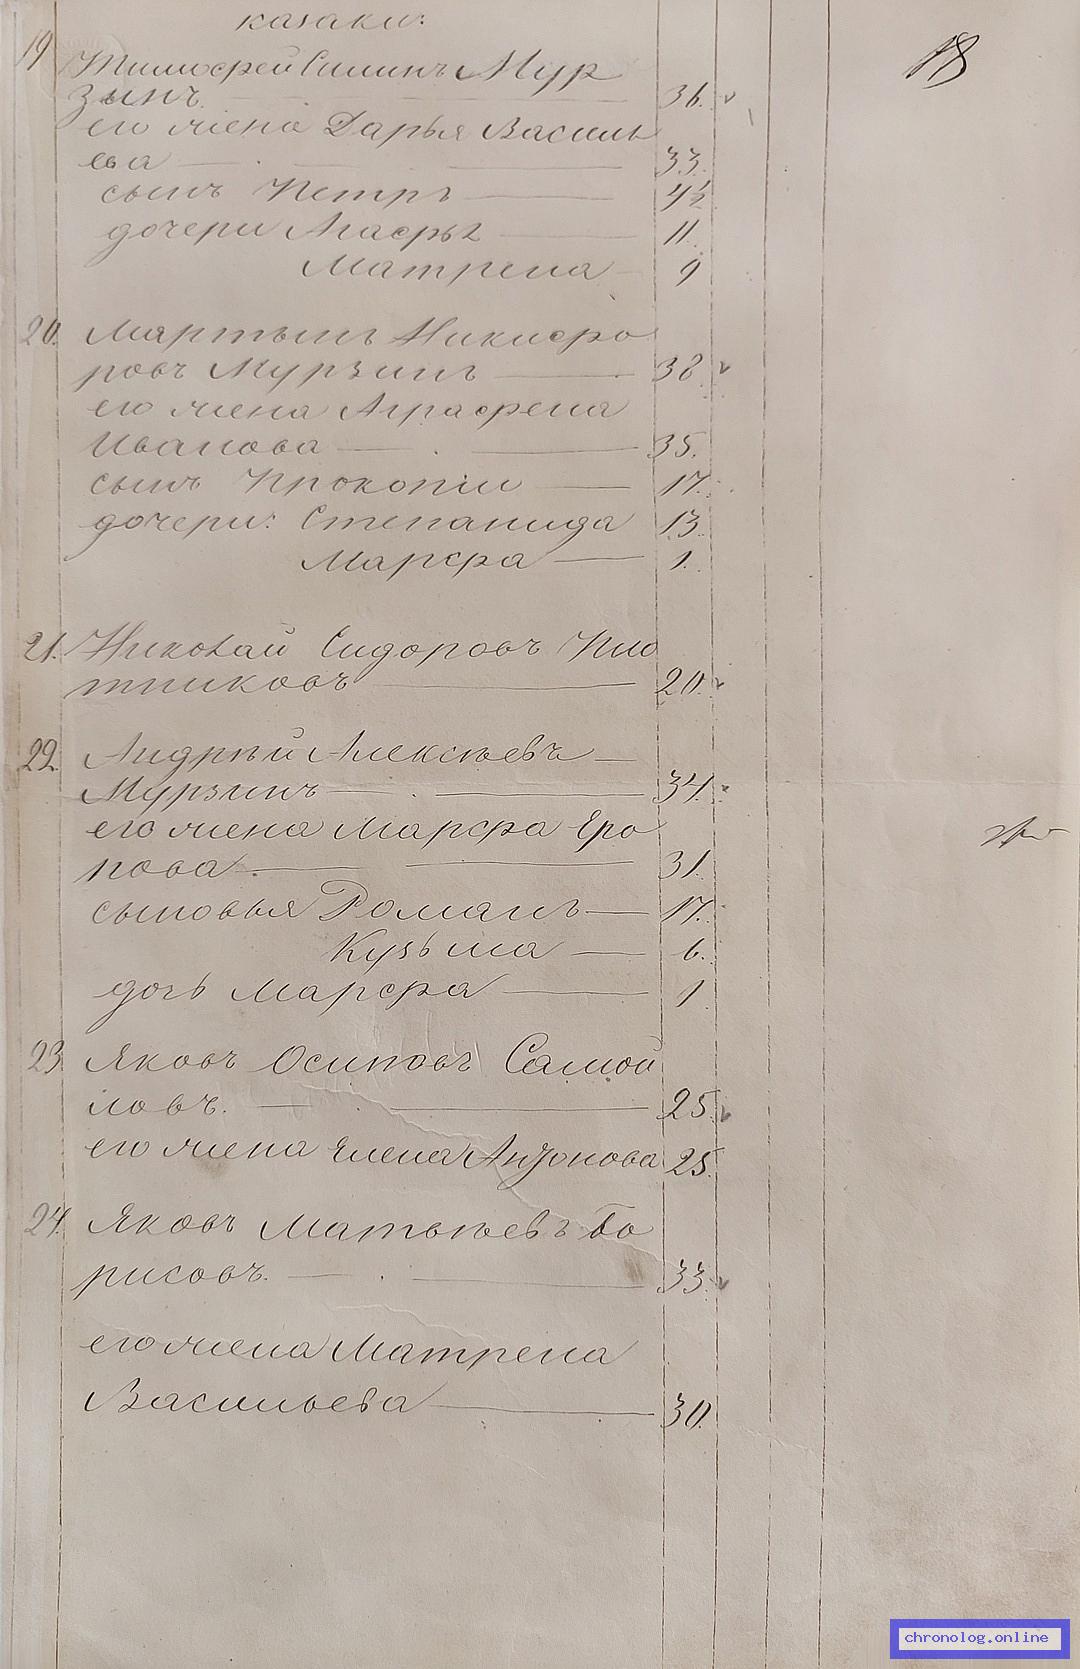 казаки:
18
19 Тимофей Силинъ Мур
зинъ. 36.
его жена Дарья Василь
ева 33.
сынъ Петръ 4½
дочери Агафья 11.
Матрена 9
20. Мартынъ Никифо
ровъ Мурзинъ 38
его жена Аграфена
Иванова 35.
сынъ Прокопій 17.
дочери: Степанида 13.
Марфа 1.
21. Николай Сидоровъ Пло
тниковъ 20.
22. Андрѣй Алексѣевъ
Мурзинъ 34.
его жена Марфа
31.
сыновья Романъ 17.
Кузьма 6.
дочь Марфа 1
23. Яковъ Осиповъ Самой
ловъ. 25.
его жена Елена Антонова 25.
24. Яковъ Матвѣевъ Бо
рисовъ. 33.
его жена Матрена
Васильева 30.
chronolog.online